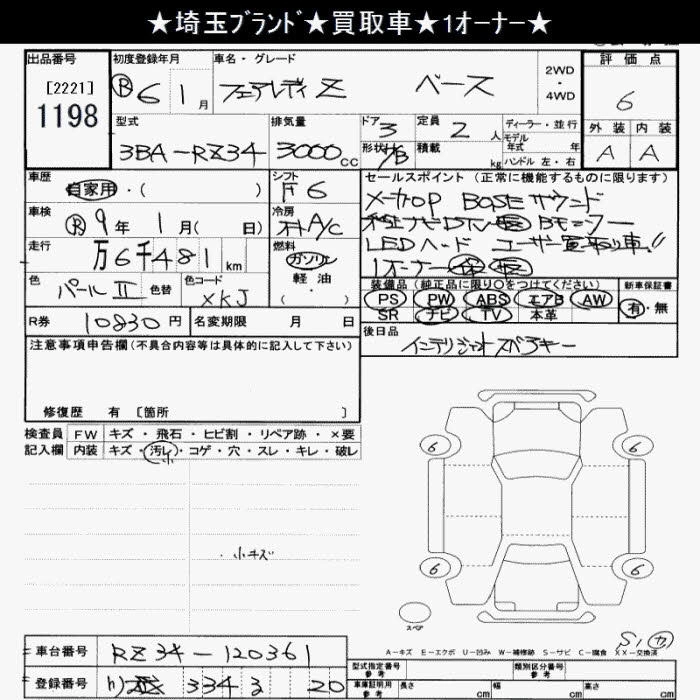 ★埼玉ﾌﾞﾗﾝﾄﾞ★買取車★1オーナー★
出品番号
[2221]
1198
初度登録年月
Ⓡ6 1月
車名・グレード
フェアレディZ ベース
2WD
・
4WD
評価点
6
型式
3BA-RZ34
排気量
3000cc
ドア 3
形状 H/B
定員 2人
積載 kg
ディーラー・並行
モデル年式 年
ハンドル 左・右
外装 内装
A A
車歴
自家用・( )
シフト
F6
車検
Ⓡ9年 1月( 日)
冷房
オートA/C
走行
万6千481km
燃料
ガソリン
軽油
( )
色
パールⅡ 色替
色コード
XKJ
R券 10830円
名変期限 月 日
セールスポイント (正常に機能するものに限ります)
メーカOP BOSEサウンド
LEDヘード ユーザー買取り車!!
1オーナー
装備品 (純正品に限り○をつけてください)
PS PW ABS エアB AW
SR ナビ TV 本革
新車保証書
有・無
後日品
インテリジェントスペアキー
注意事項申告欄 (不具合内容等は具体的に記入して下さい)
修復歴 有 [箇所 ]
検査員 FW キズ・飛石・ヒビ割・リペア跡・×要
記入欄 内装 キズ・汚レ・コゲ・穴・スレ・キレ・破レ
小
・小キズ
6 6
6 6
スペア
S1 カ
A－キズ E－エクボ U－凹み W－補修跡 S－サビ C－腐食 XX－交換済
車台番号 RZ34-120361
登録番号 334 20
型式指定番号 参考
類別区分番号 参考
車庫証明用 参考 長さ cm 幅 cm 高さ cm